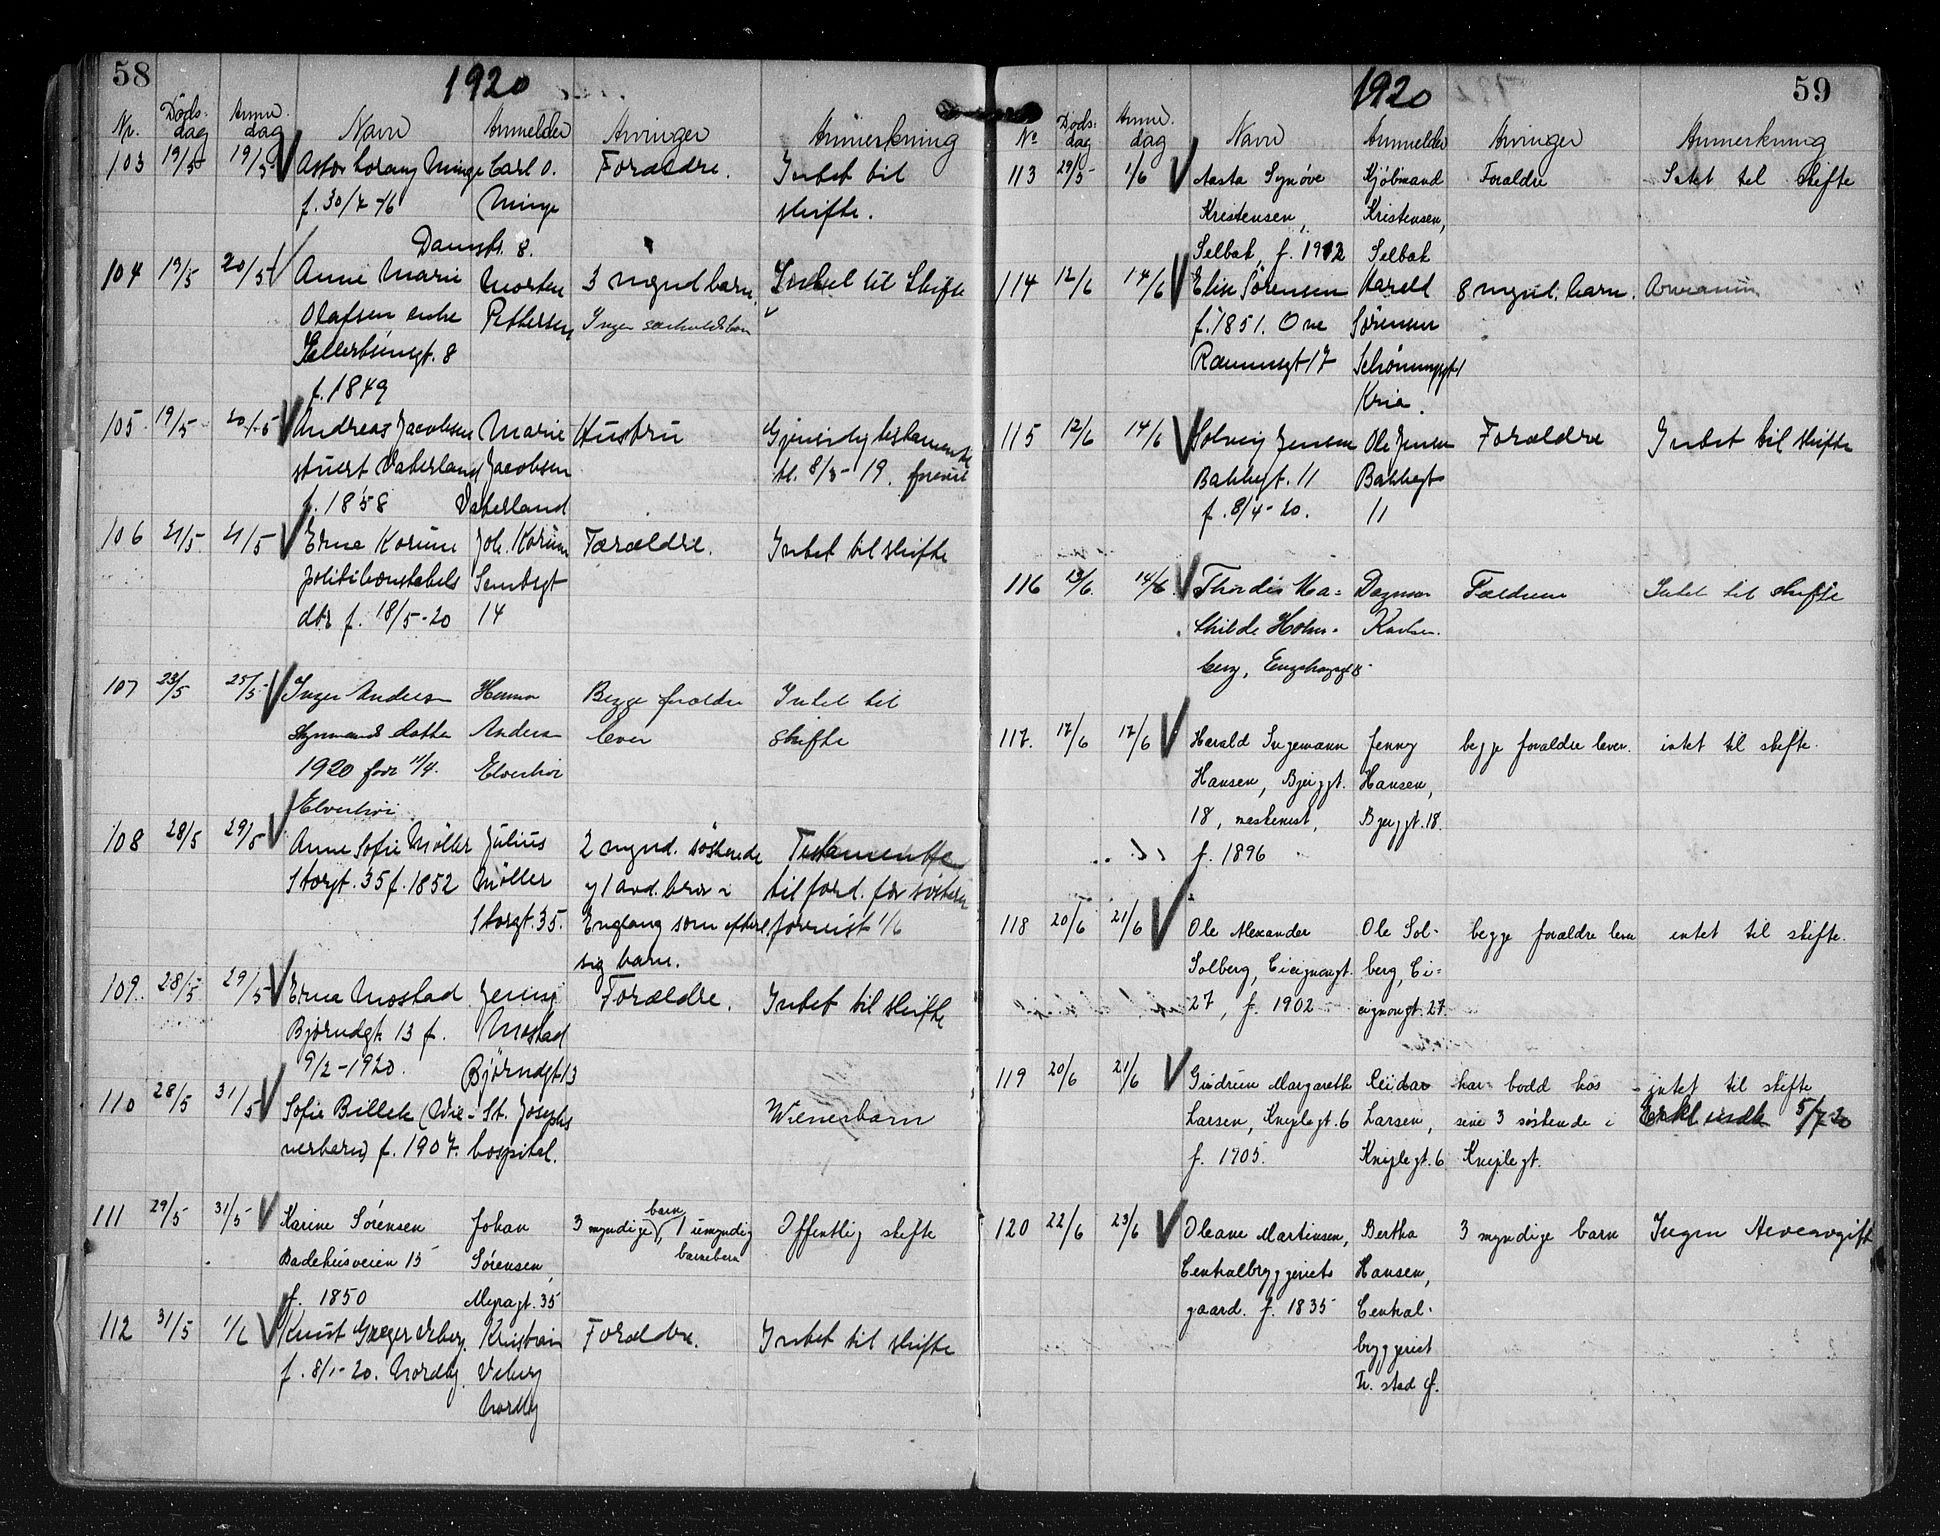 58
1920
Nr. Döds- dag Anm. dag Navn Anmelder Arvinger Anmerkning
103 19/5 19/5 Minge Carl O. Forældre. Intet til
f. 30/7-16 Minge skifte.
8.
104 19/5 20/5 Anne Marie Morten 3 mynd barn, Intet til Skifte
Olafsen enke Pettersen Ingen
8
f. 1849
105 19/5 20/5 Andreas Jacobsen Marie Hustru Gjensidig testamente
stuert Vaterland Jacobsen 8/3-19.
f. 1858 Vaterland
106 21/5 21/5 Erna Korum Joh. Korum Forældre. Intet til skifte
politikonstabels
dtr f. 18/5-20 14
107 23/5 25/5 Inger Andersen Begge forældre Intet til
datter Andersen lever skifte
1920 født 11/4. Elverhøi
Elverhøi
108 28/5 29/5 Anne Sofie Möller Julius 2 mynd. söskende Testamente
Storgt. 35 f. 1852 Möller 1 avd. bror i til ford. for
Storgt. 35. England som efterl. forevist 1/6
sig barn.
109. 28/5 29/5 Erna Mostad Jenny Forældre. Intet til skifte
Bjørndgt. 13 f. Mostad
9/2-1920. Bjørndgt 13
110 28/5 31/5 Sofie Billek (Wie- St. Josephs Wienerbarn
nerbarn) f. 1907. hospital.
111 29/5 31/5 Karine Sørensen Johan 3 myndige barn, 1 umyndig Offentlig skifte
Badehusveien 15 Sørensen, barnebarn
f. 1850 Myragt. 35
112 31/5 1/6 Knut Kristian Forældre. Intet til skifte
f. 8/1-20. Nordby Viberg
Nordby
59
1920
No Döds- dag Anm. dag Navn Anmelder Arvinger Anmerkning
113 29/5 1/6 Aasta Synøve Kjöbmand Foraldre Intet til skifte
Kristensen, Kristensen,
Selbak, f. 1912 Selbak
114 12/6 14/6 Elise Sørensen Harald 8 mynd. barn.
f. 1851. Sørensen
17
Kria.
115 12/6 14/6 Solveig Jensen Ole Jensen Forældre Intet til skifte
Bakkegt. 11 Bakkegt
f. 8/4-20. 11
116 13/6. 14/6. Thordis Ma- Dagmar Intet til skifte
thilde Holm- Karlsen.
berg,
117. 17/6 17/6 Harald Ingemann Jenny begge foraldre lever. intet til skifte.
Hansen, Hansen,
18,
f. 1896
118 20/6 21/6 Ole Alexander Ole Sol- begge foraldre lever intet til skifte.
Solberg, Cicignongt. berg, Ci-
27, f. 1902 cignongt. 27.
119 20/6 21/6 Gudrun Margarethe Reidar har bodd hos intet til skifte
Larsen, Kniplegt. 6 Larsen, sine 3 søskende i 5/7 20
f. 1905. Kniplegt. 6 Kniplegt.
120 22/6 23/6 Oleane Martinsen, Bertha 3 myndige barn Ingen Arveavgift
Centralbryggeriets Hansen,
gaard. f. 1835 Central-
bryggeriet
Fr. stad Ø.